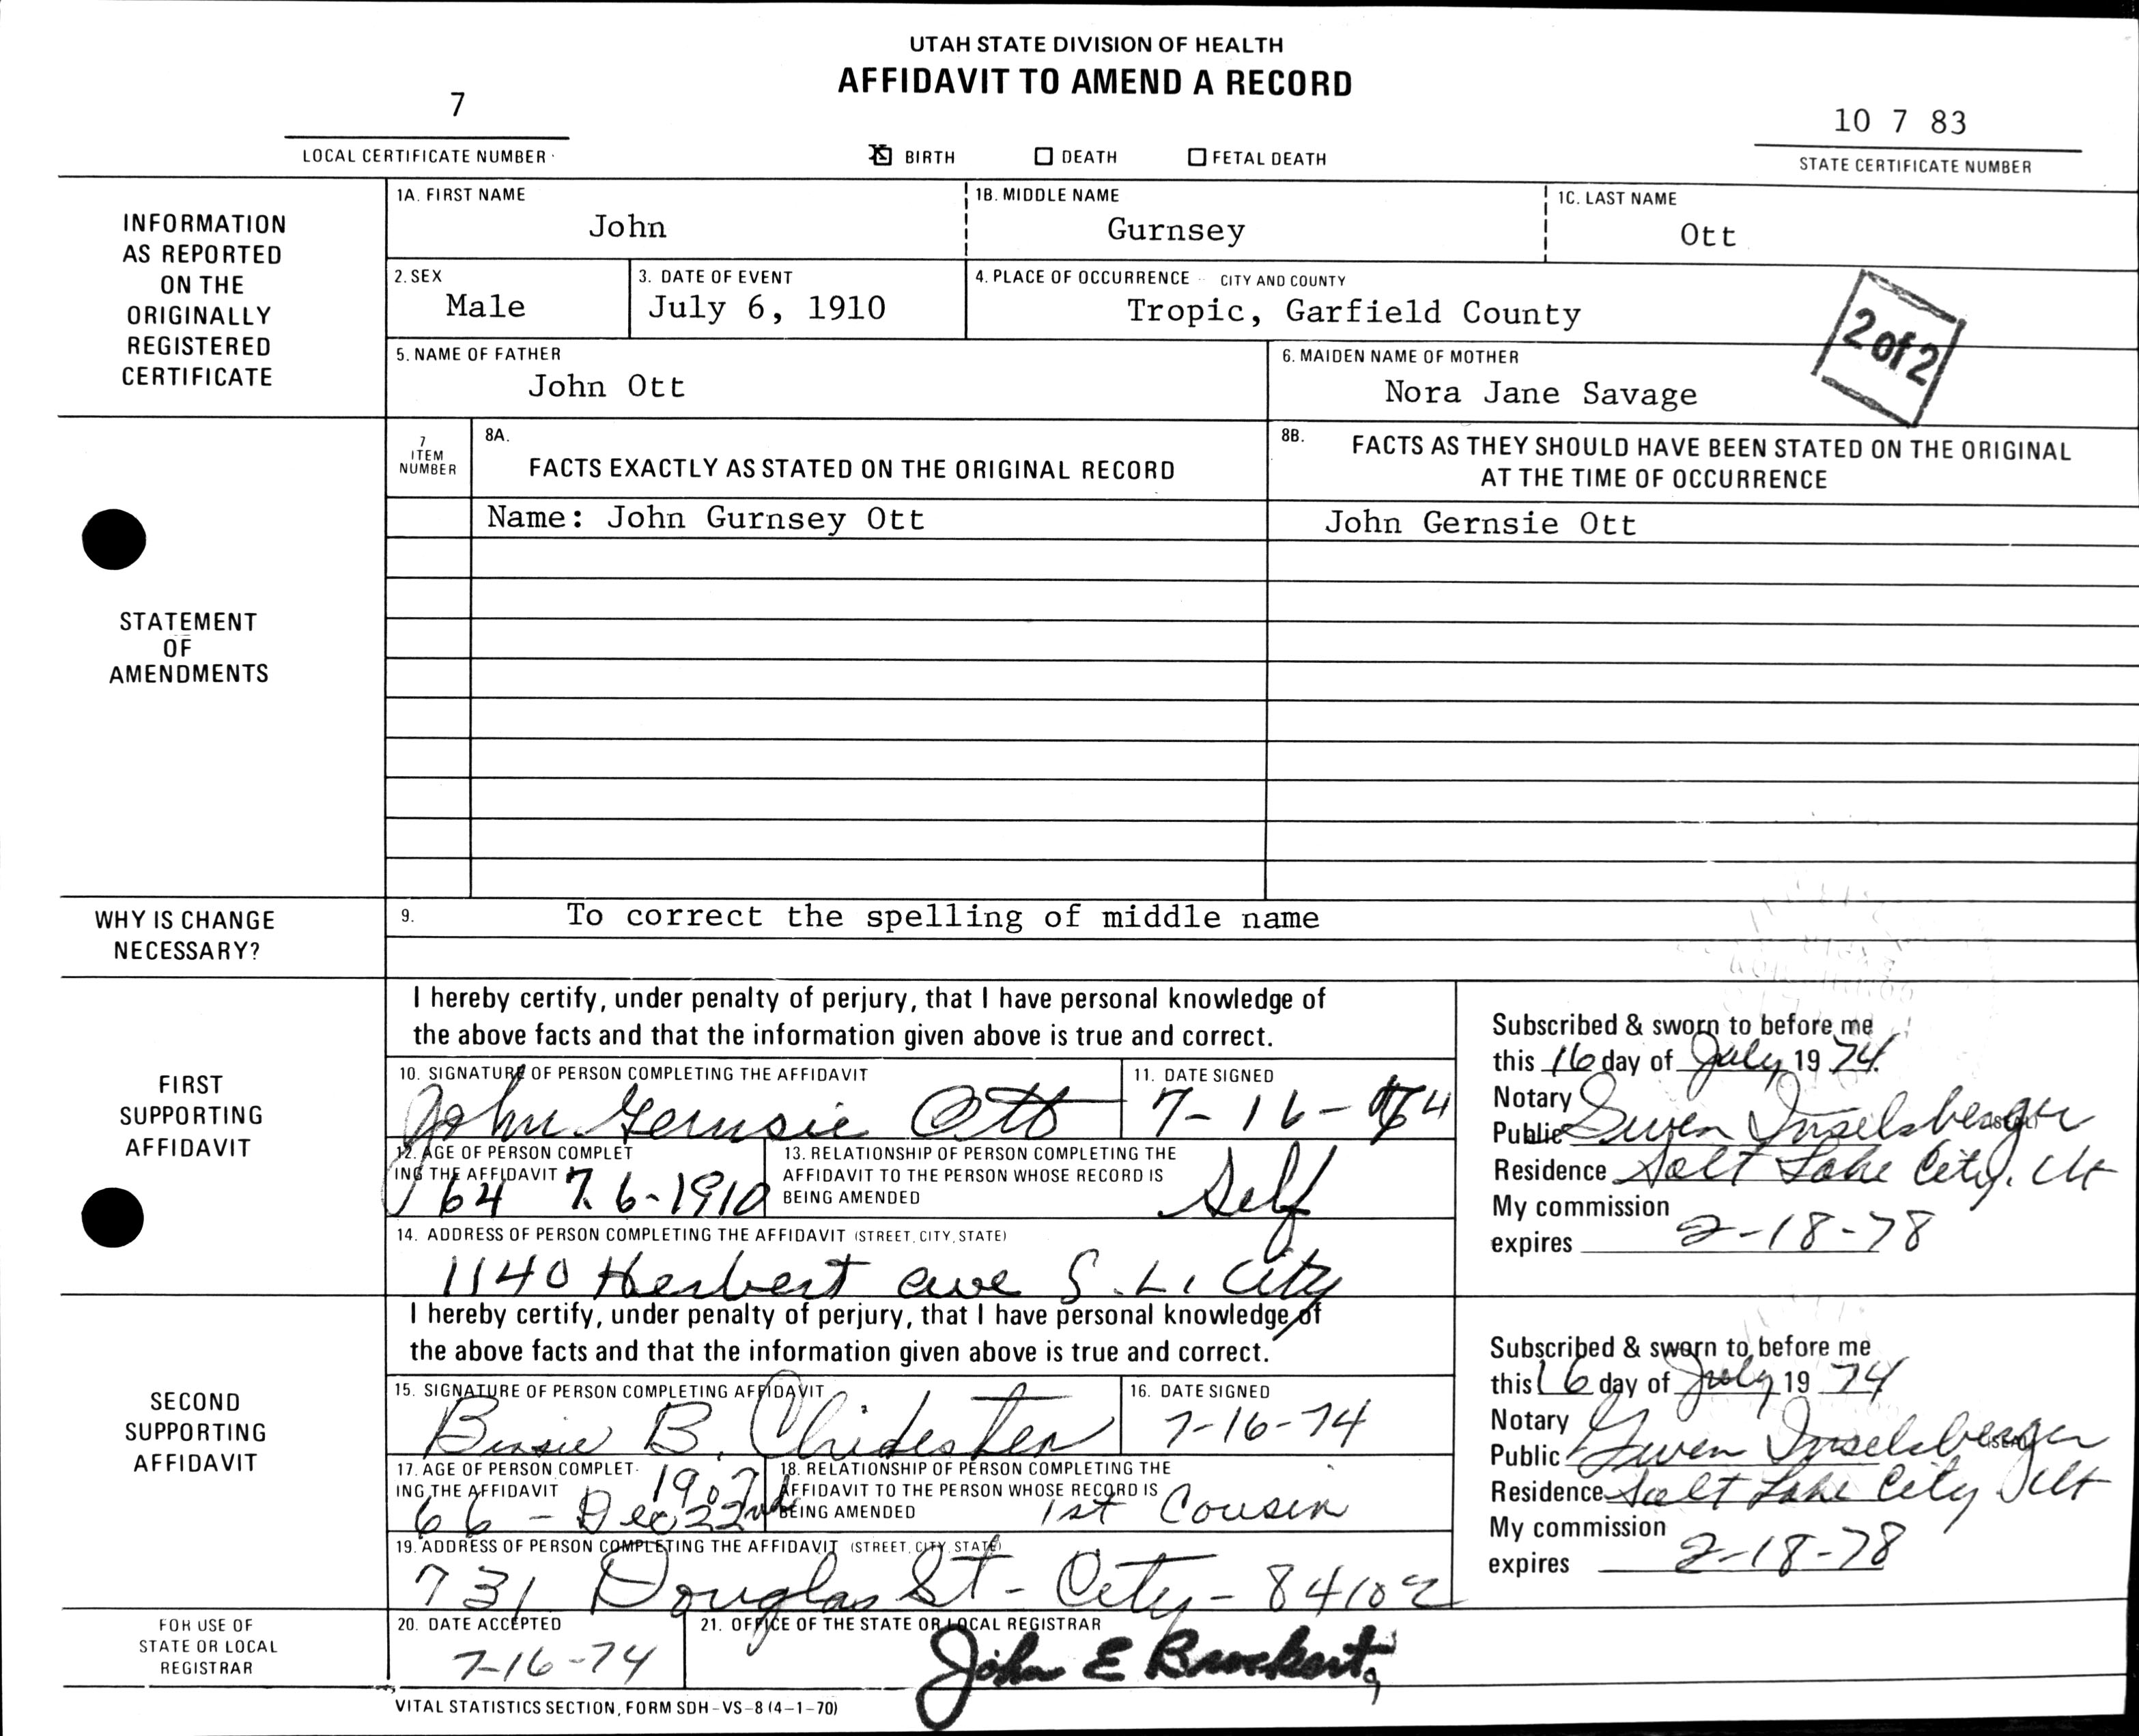 UTAH STATE DIVISION OF HEALTH
AFFIDAVIT TO AMEND A RECORD
7
LOCAL CERTIFICATE NUMBER
10 7 83
STATE CERTIFICATE NUMBER
BIRTH DEATH FETAL DEATH
INFORMATION
AS REPORTED
ON THE
ORIGINALLY
REGISTERED
CERTIFICATE
1A. FIRST NAME
John
1B. MIDDLE NAME
Gurnsey
1C. LAST NAME
Ott
2. SEX
Male
3. DATE OF EVENT
July 6, 1910
4. PLACE OF OCCURRENCE -- CITY AND COUNTY
Tropic, Garfield County
5. NAME OF FATHER
John Ott
6. MAIDEN NAME OF MOTHER
Nora Jane Savage
2 of 2
STATEMENT
OF
AMENDMENTS
7
ITEM
NUMBER
8A.
FACTS EXACTLY AS STATED ON THE ORIGINAL RECORD
8B.
FACTS AS THEY SHOULD HAVE BEEN STATED ON THE ORIGINAL
AT THE TIME OF OCCURRENCE
Name: John Gurnsey Ott
John Gernsie Ott
WHY IS CHANGE
NECESSARY?
9.
To correct the spelling of middle name
FIRST
SUPPORTING
AFFIDAVIT
I hereby certify, under penalty of perjury, that I have personal knowledge of
the above facts and that the information given above is true and correct.
10. SIGNATURE OF PERSON COMPLETING THE AFFIDAVIT
John Gernsie Ott
11. DATE SIGNED
7-16-74
12. AGE OF PERSON COMPLET
ING THE AFFIDAVIT
64 7-6-1910
13. RELATIONSHIP OF PERSON COMPLETING THE
AFFIDAVIT TO THE PERSON WHOSE RECORD IS
BEING AMENDED
Self
14. ADDRESS OF PERSON COMPLETING THE AFFIDAVIT (STREET, CITY, STATE)
1140 Herbert ave S. L. City
Subscribed & sworn to before me
this 16 day of July 19 74.
Notary
Public Gwen Inselsberger
Residence Salt Lake City, Ut
My commission
expires 2-18-78
SECOND
SUPPORTING
AFFIDAVIT
I hereby certify, under penalty of perjury, that I have personal knowledge of
the above facts and that the information given above is true and correct.
15. SIGNATURE OF PERSON COMPLETING AFFIDAVIT
B. Chidester
16. DATE SIGNED
7-16-74
17. AGE OF PERSON COMPLET-
ING THE AFFIDAVIT
1907
66 - Dec 22nd
18. RELATIONSHIP OF PERSON COMPLETING THE
AFFIDAVIT TO THE PERSON WHOSE RECORD IS
BEING AMENDED
1st Cousin
19. ADDRESS OF PERSON COMPLETING THE AFFIDAVIT (STREET, CITY, STATE)
731 Douglas St - City - 84102
Subscribed & sworn to before me
this 16 day of July 19 74
Notary
Public Gwen Inselsberger
Residence Salt Lake City Ut
My commission
expires 2-18-78
FOR USE OF
STATE OR LOCAL
REGISTRAR
20. DATE ACCEPTED
7-16-74
21. OFFICE OF THE STATE OR LOCAL REGISTRAR
John E Brockert
VITAL STATISTICS SECTION, FORM SDH-VS-8 (4-1-70)